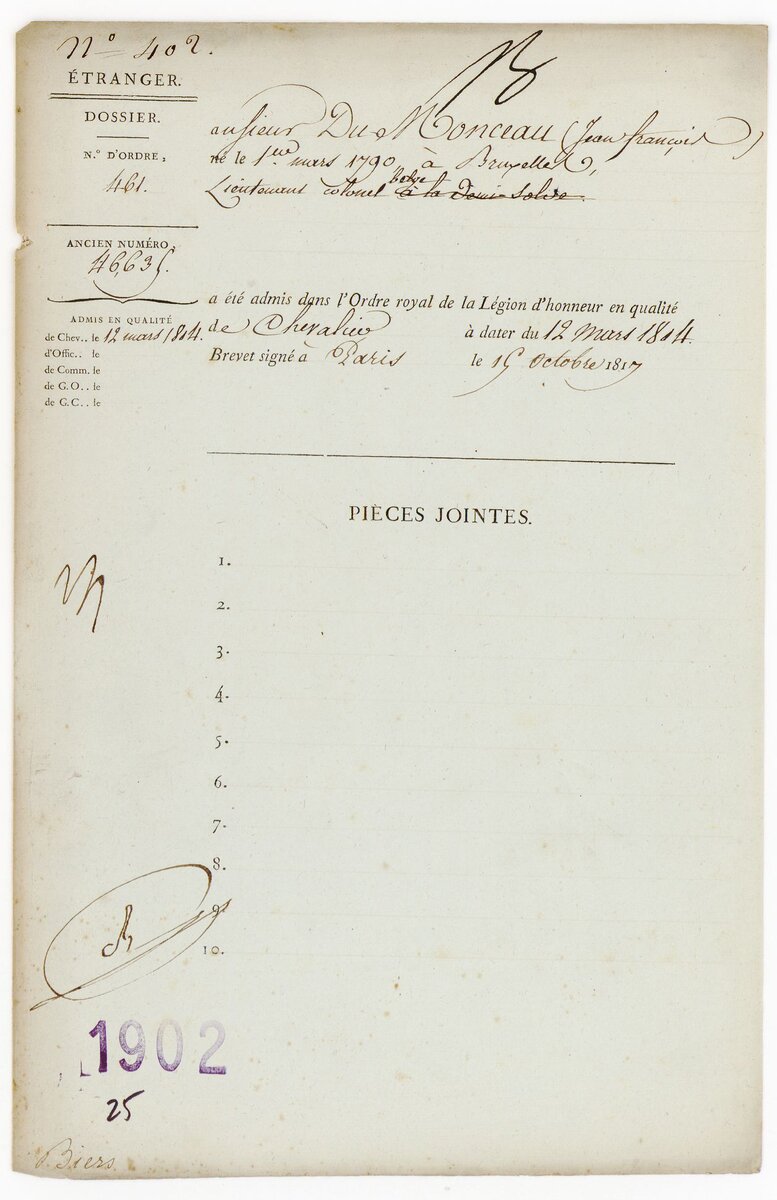 N.º 402.
ÉTRANGER.
DOSSIER.
N.º D'ORDRE,
461.
ANCIEN NUMÉRO,
46,635.
ADMIS EN QUALITÉ
de Chev.. le 12 mars 1814.
d'Offic.. le
de Comm. le
de G.O.. le
de G.C.. le
onsieur Du Monceau (Jean françois)
né le 1er mars 1790 à Bruxelles,
Lieutenant colonel Belge à la Demi-Solde.
a été admis dans l'Ordre royal de la Légion d'honneur en qualité
de Chevalier à dater du 12 Mars 1814.
Brevet signé à Paris le 15 Octobre 1817
PIÈCES JOINTES.
1.
2.
3.
4.
5.
6.
7.
8.
9.
10.
1902
25
Biers